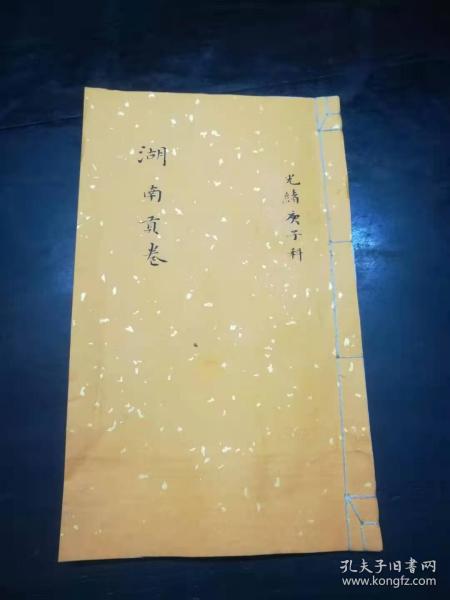 光緒庚子科
湖南貢卷
孔夫子旧书网
www.kongfz.com